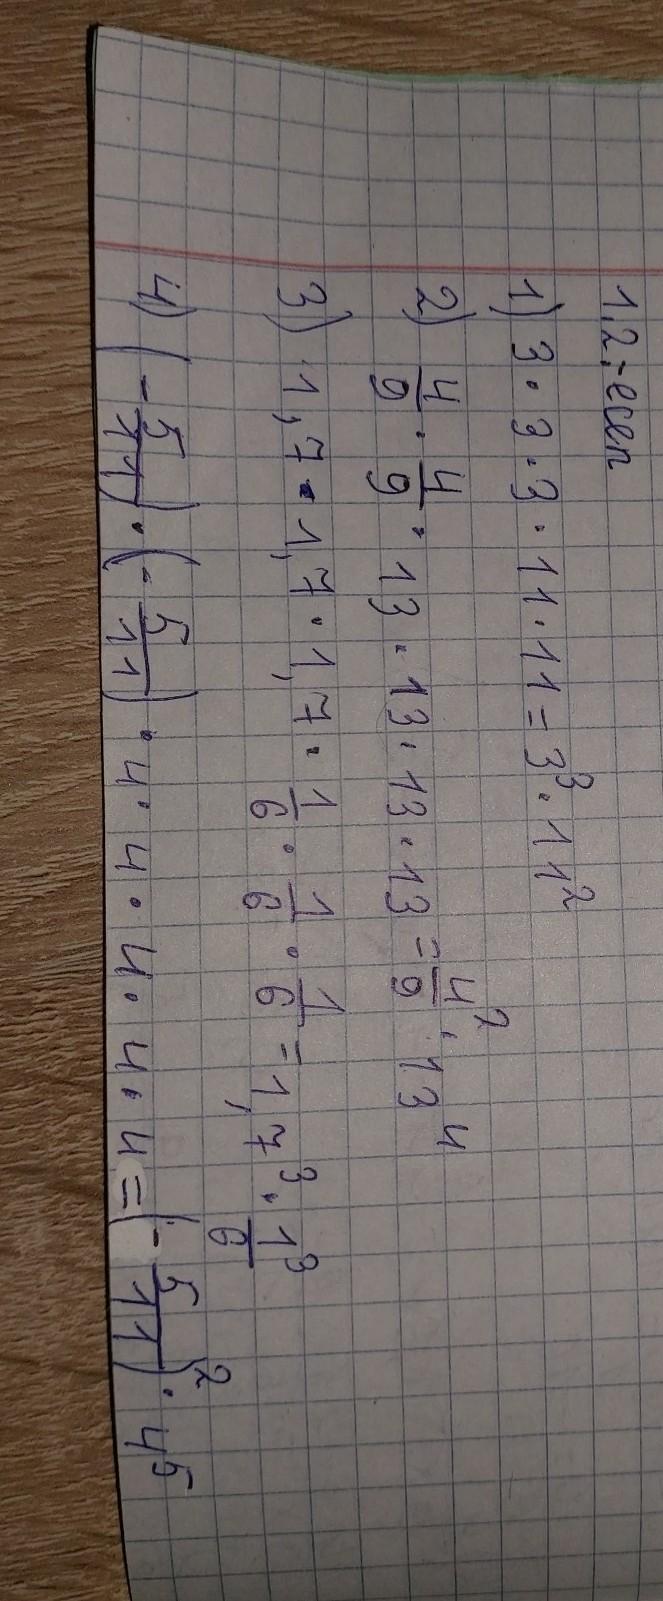 1,2;-есеп
1) 3·3·3·11·11=3³·11²
2) 4/9·4/9·13·13·13·13=4²/9·13⁴
3) 1,7·1,7·1,7·1/6·1/6·1/6=1,7³·1³/6
4) (-5/11)·(-5/11)·4·4·4·4·4=(-5/11)²·4⁵